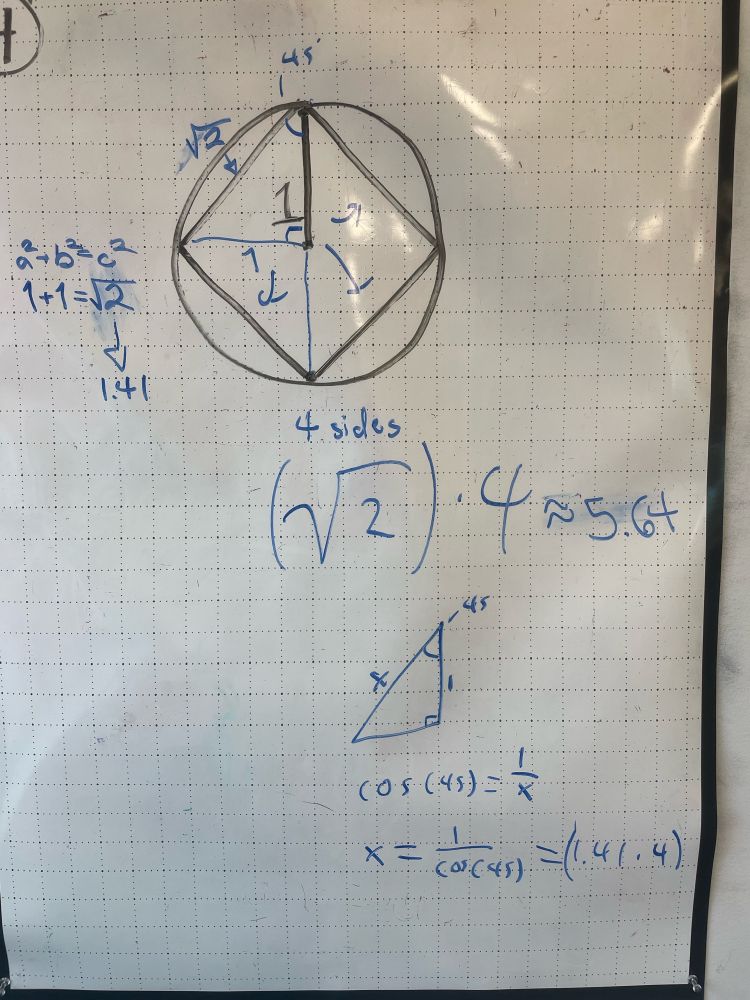 4
45°
√2
1
1
a²+b²=c²
1+1=√2
1.41
4 sides
(√2)·4≈5.64
45
x
1
cos(45)=1/x
x=1/cos(45)=(1.41.4)